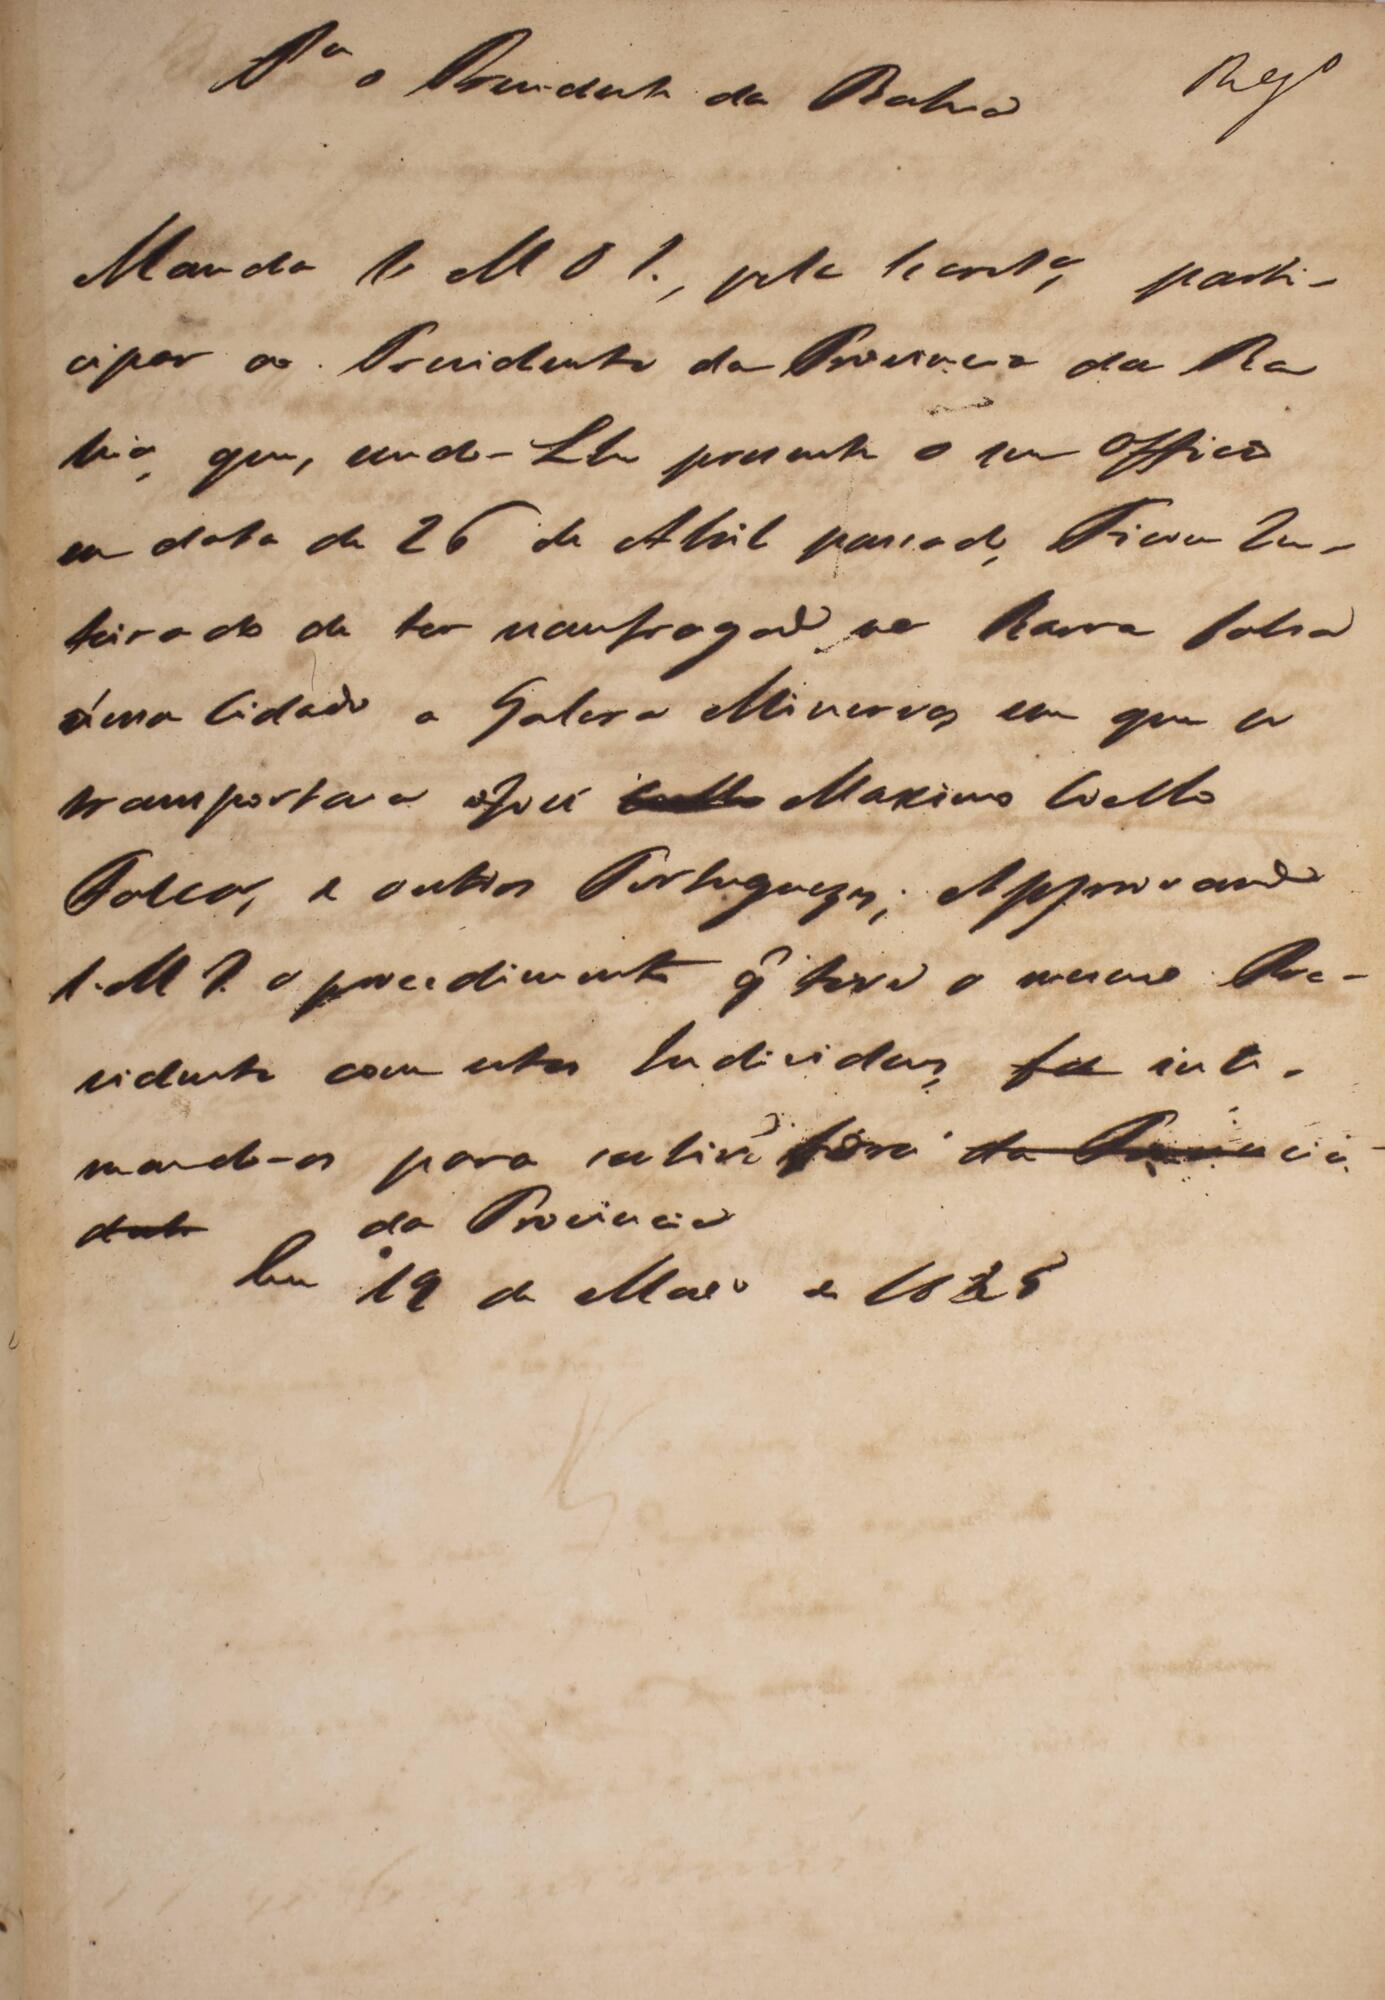 P.ª o Presidente da Bahia
Reg.º
Manda S. M. O I., pela Secret.ª, parti-
cipar ao Presidente da Provincia da Ba
hia, que, sendo-Lhe presente o seu officio
em data de 26 de Abril passado, Ficou In-
teirado de ter naufragado na Barra falsa
d'essa Cidade a Galera Minerva, em que se
transportava José Maximo Coelho
Falcão, e outros Portuguezes; Approvando
S. M. I. o procedimento q̃ teve o mesmo Pre-
sidente com estes Individuos, inti-
mando-os para sahirem fóra da Provincia
da Provincia
Em 19 de Maio de 1825